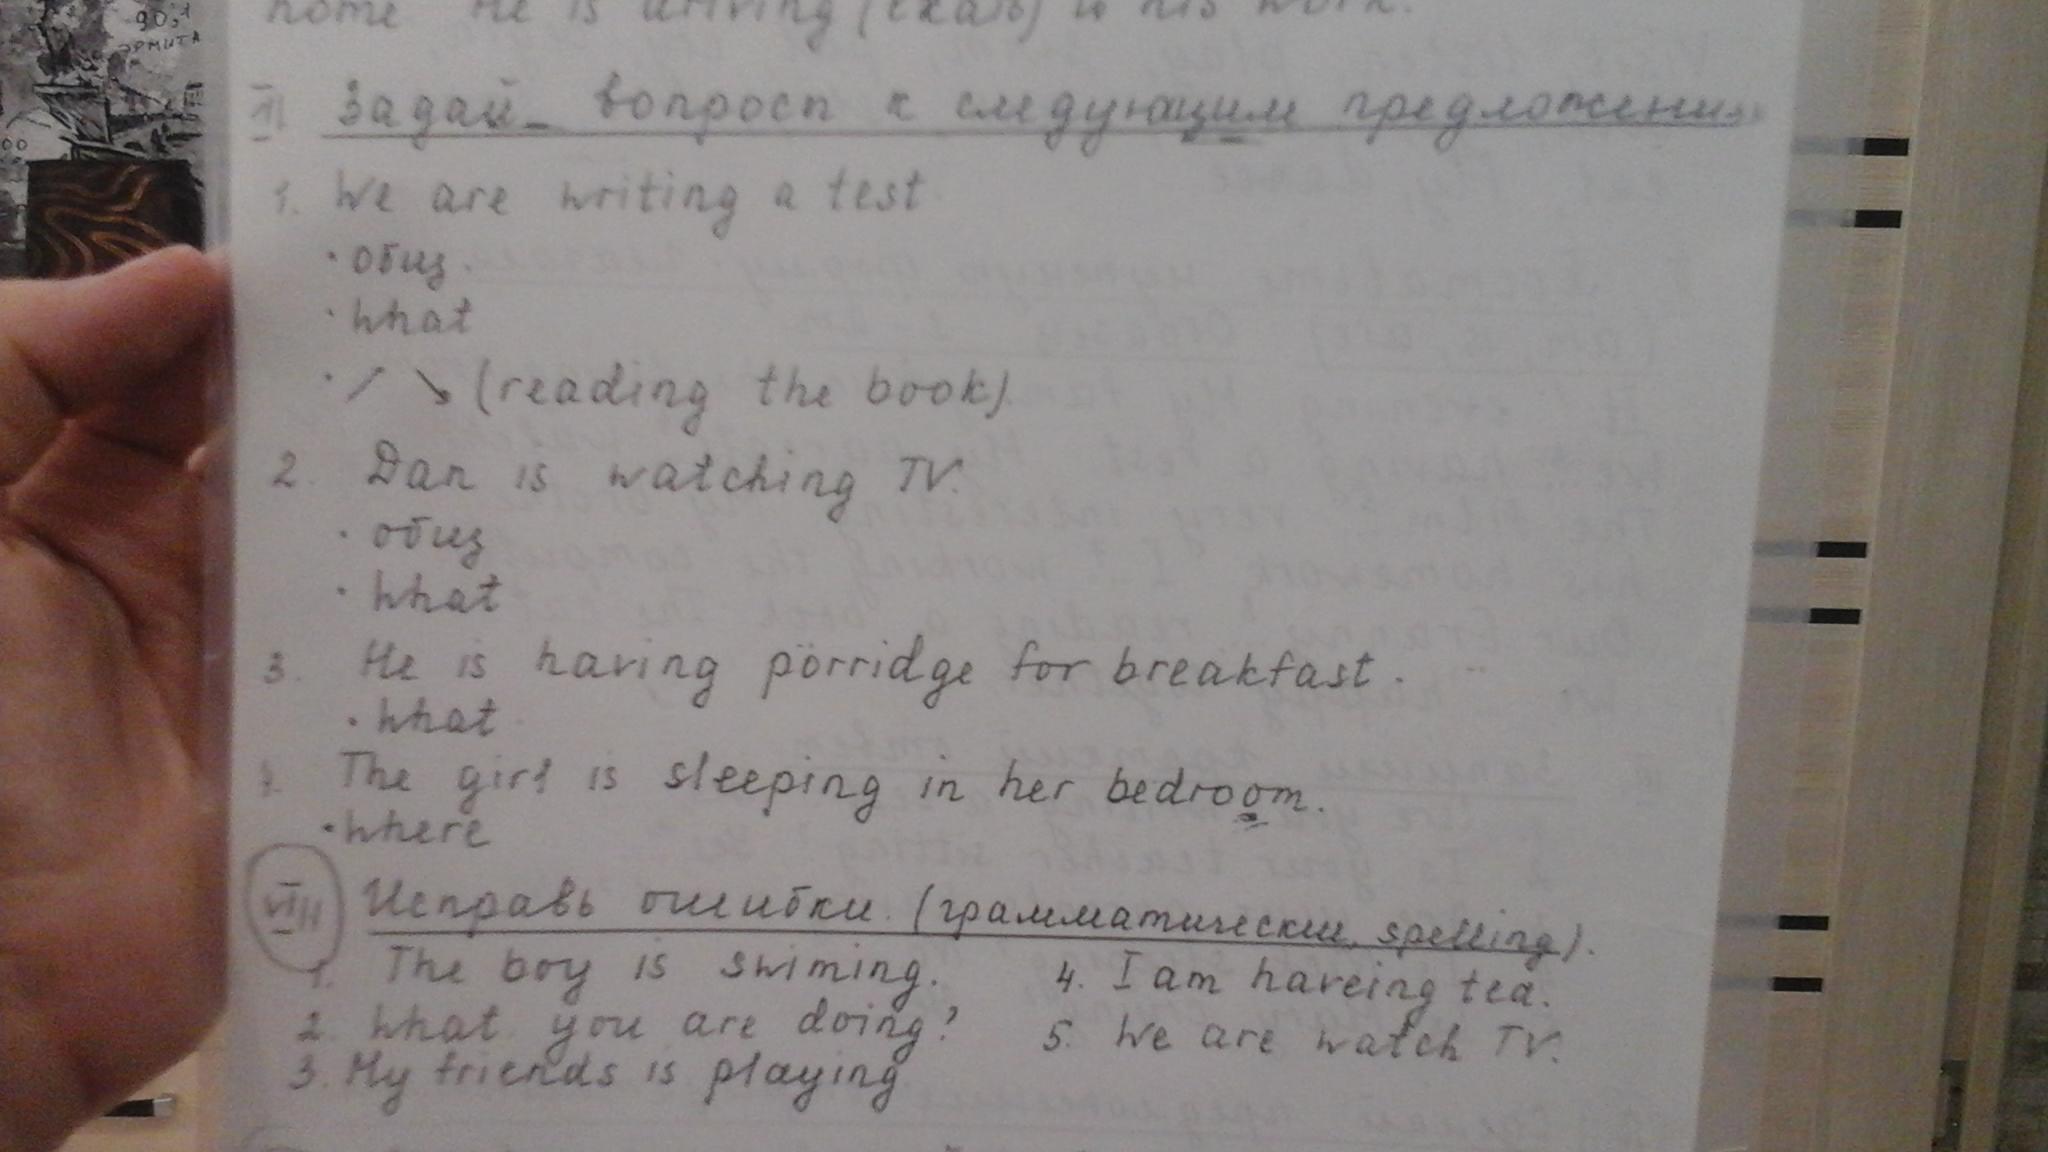 90,1
ЭРМИТА
00
home He is driving (ехать) to his work.
VI Задай вопросы к следующим предложениям
1. We are writing a test.
• общ.
• What
• / ↘ (reading the book).
2. Dan is watching TV.
• общ
• What
3. He is having porridge for breakfast.
• What
4. The girl is sleeping in her bedroom.
• Where
VII Исправь ошибки. (грамматические, spelling).
1. The boy is swiming. 4. I am haveing tea.
2. What you are doing? 5. We are watch TV.
3. My friends is playing